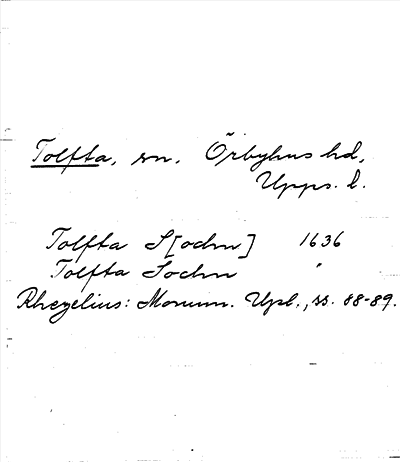 Tolfta, sn, Örbyhus hd,
Upps. l.
Tolfta S[ochn] 1636
Tolfta Sochn "
Rhezelius: Monum. Upl., ss. 88-89.